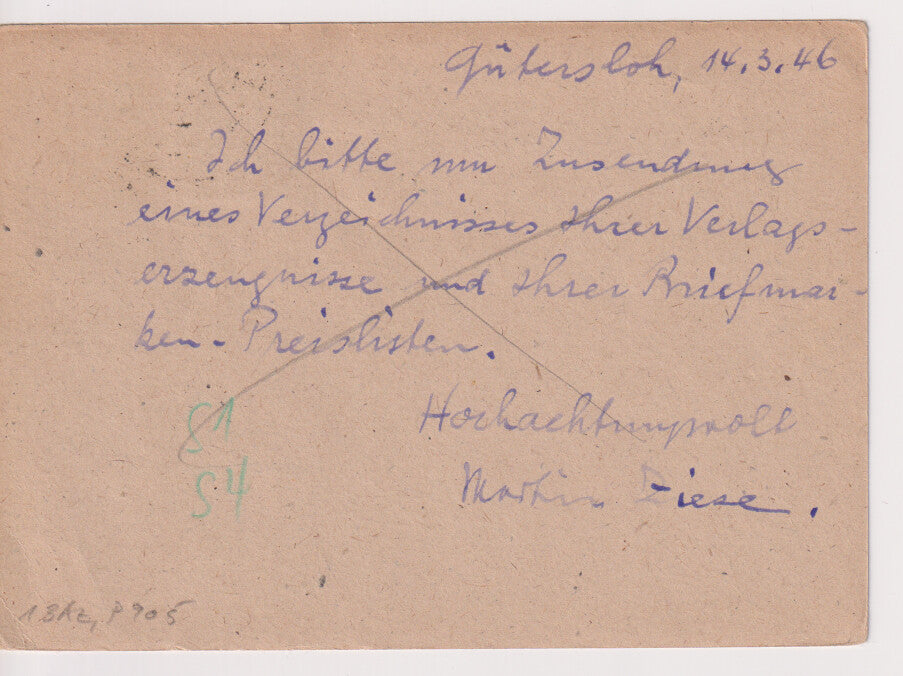 Gütersloh, 14.3.46
Ich bitte um Zusendung
eines Verzeichnisses Ihrer Verlags-
erzeugnisse und Ihrer Briefmar-
ken-Preislisten.
Hochachtungsvoll
Martin Ziese.
S1
S4